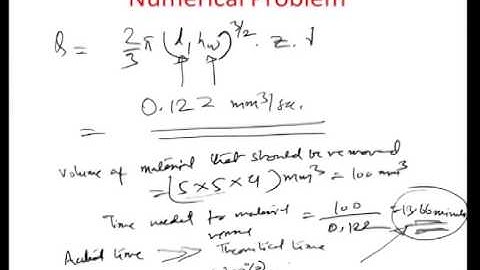 Numerical Problem
Q = 2/3 π (d, hw)^3/2 . z. γ
= 0.122 mm³/sec.
Volume of material that should be removed
= (5×5×4) mm³ = 100 mm³
Time needed to material remove = 100/0.122 = 13.66 minutes
Actual time >> Theoretical time